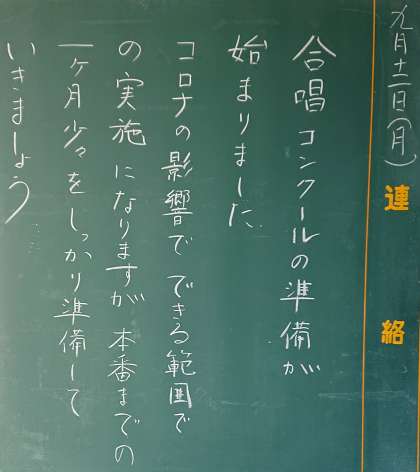 九月十二日(月)
連絡
合唱コンクールの準備が
始まりました
コロナの影響でできる範囲で
の実施になりますが本番までの
一ヶ月少々をしっかり準備して
いきましょう